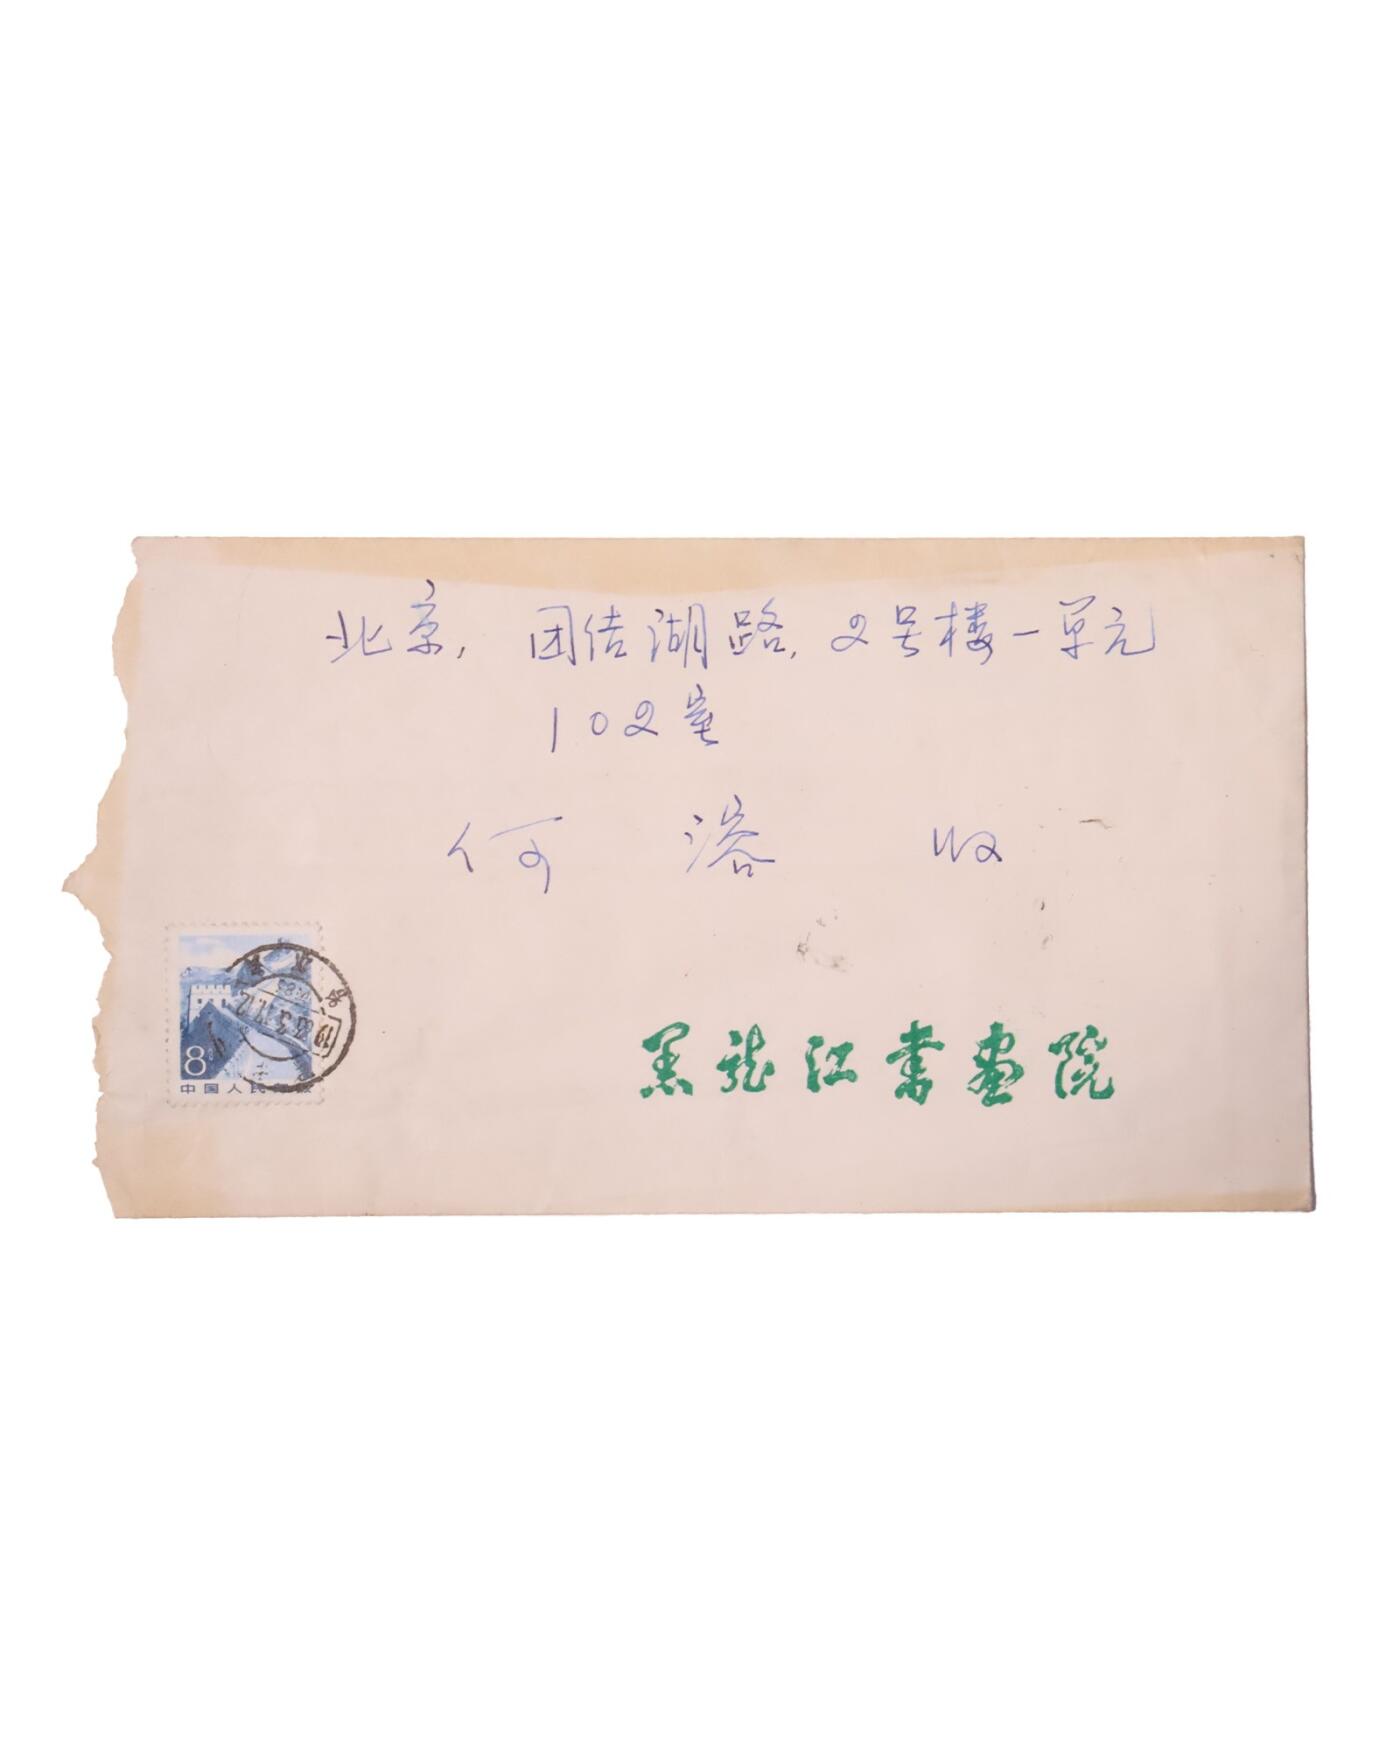 北京，团结湖路，2号楼一单元
102室
何溶 收
8
中国人民邮政
黑龙江书画院